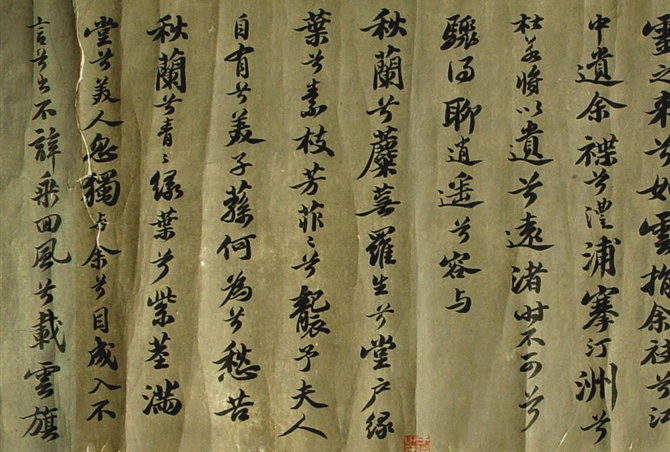 靈之來兮如雲捐余袂兮江
中遺余褋兮澧浦搴汀洲兮
杜若將以遺兮遠渚时不可兮
驟得聊逍遙兮容与
秋蘭兮蘪蕪羅生兮堂戶緑
葉兮素枝芳菲〻兮襲予夫人
自有兮美子蓀何為兮愁苦
秋蘭兮青〻緑葉兮紫莖滿
堂兮美人忽獨与余兮目成入不
言兮出不辭乘回風兮載雲旗